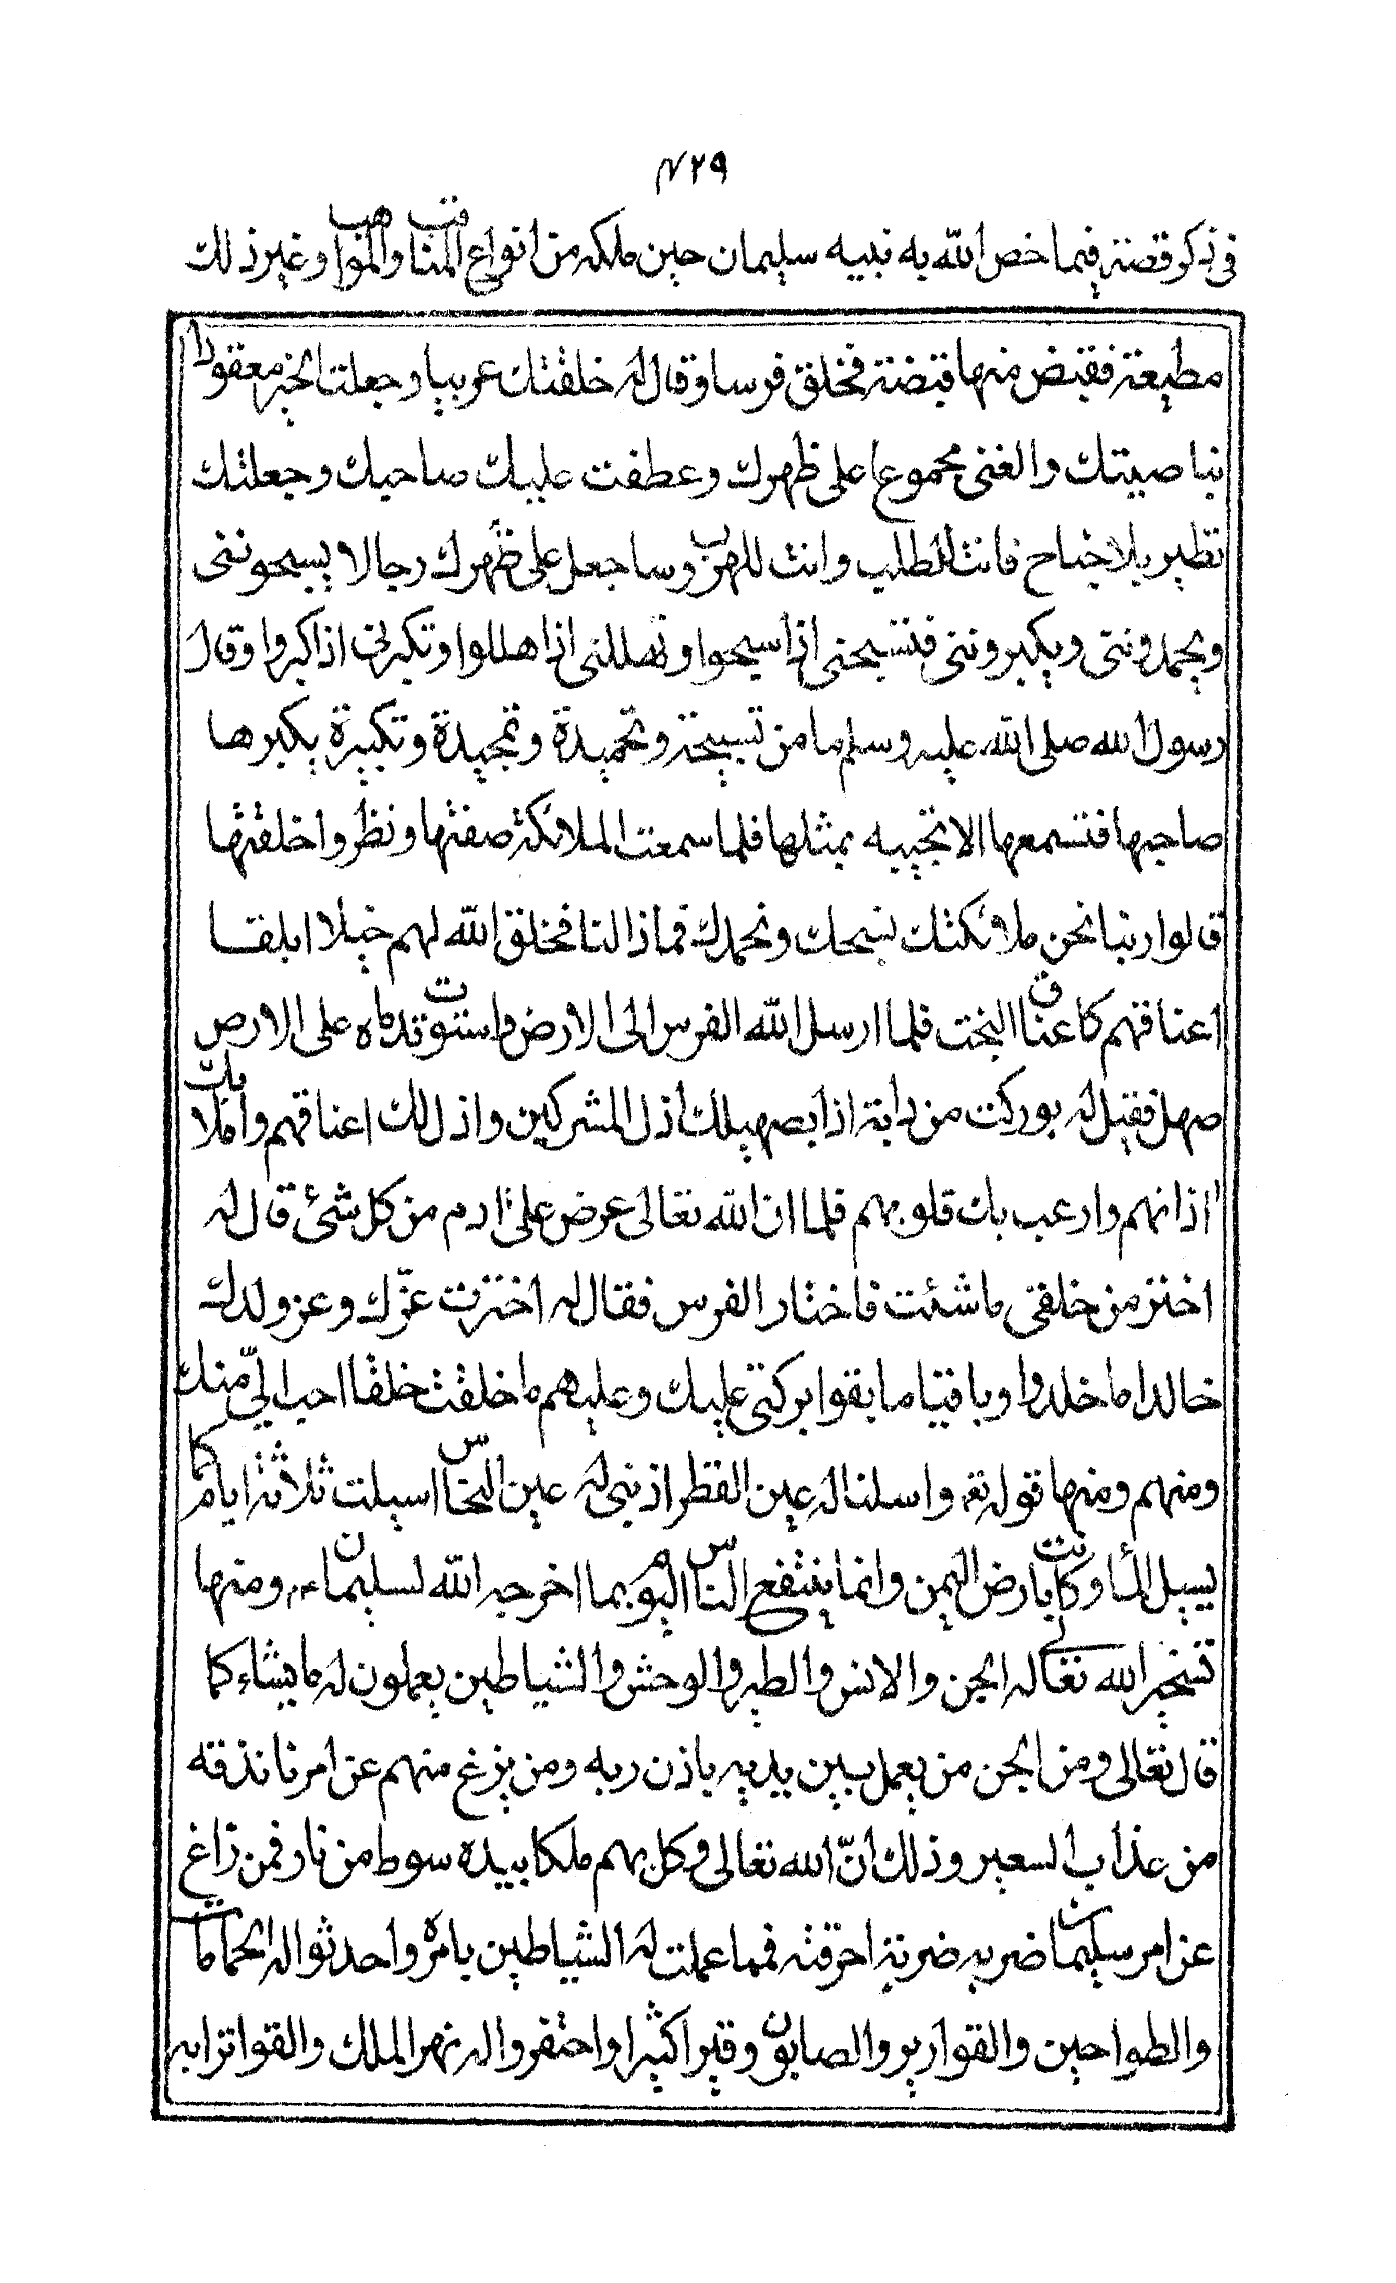 ٤٢٩
في ذكر قصة فيما خص الله به نبيه سليمان حين ملكه من انواع المناقب والمواهب وغير ذلك
مطيعة فقبض منها قبضة فخلق فرسا وقال له خلقتك عربيا وجعلت الخير معقودا
بناصيتك والغنى مجموعا على ظهرك وعطفت عليك صاحبك وجعلتك
تطير بلا جناح فانت للطلب وانت للهرب وساجعل على ظهرك رجالا يسبحونني
ويحمدونني ويكبرونني فتسبحني اذا سبحوا وتهللني اذا هللوا وتكبرني اذا كبروا وقال
رسول الله صلى الله عليه وسلم ما من تسبيحة وتحميدة وتمجيدة وتكبيرة يكبرها
صاحبها فتسمعها الا تجيبه بمثلها فلما سمعت الملائكة صفتها ونظروا خلقتها
قالوا ربنا نحن ملائكتك نسبحك ونحمدك فماذا لنا فخلق الله لهم خيلا ابلقا
اعناقهم كاعناق البخت فلما ارسل الله الفرس الى الارض واستوت قدماه على الارض
صهل فقيل له بوركت من دابة اذا بصهيلك اذل المشركين واذل لك اعناقهم واملا بك
اذانهم وارعب بك قلوبهم فلما ان الله تعالى عرض على ادم من كل شئ قال له
اختر من خلقي ما شئت فاختار الفرس فقال له اخترت عزّك وعز ولدك
خالدا ما خلدوا وباقيا ما بقوا بركتي عليك وعليهم ما خلقت خلقا احب اليّ منك
ومنهم ومنها قوله تع واسلنا له عين القطر اذ نبي له عين النحاس اسيلت ثلاثة ايام كما
يسيل الماء وكانت بارض اليمن وانما ينتفع الناس اليوم بما اخرجه الله لسليمان ء م ومنها
تسخير الله تعالى له الجن والانس والطير والوحش والشياطين يعملون له ما يشاء كما
قال تعالى ومن الجن من يعمل بين يديه باذن ربه ومن يزغ منهم عن امرنا نذقه
من عذاب السعير وذلك انّ الله تعالى وكل بهم ملكا بيده سوط من نار فمن زاغ
عن امر سليمان ضربه ضربة احرقته فمما عملت له الشياطين بامره واحدثوا له الحمامات
والطواحين والقوارير والصابون وقير اكثيرا واحتفروا له نهر الملك والقوا ترابه